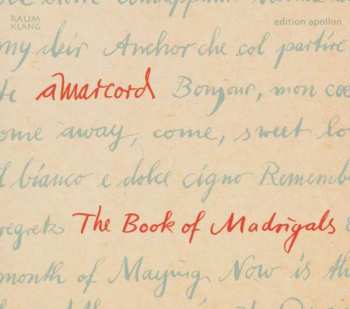 RAUM
KLANG
edition apollon
my dear Anchor che col partire
amarcord Bonjour, mon cœ
come away, come, sweet lo
l bianco e dolce cigno Remembe
regrets The Book of Madrigals
month of Maying Now is th